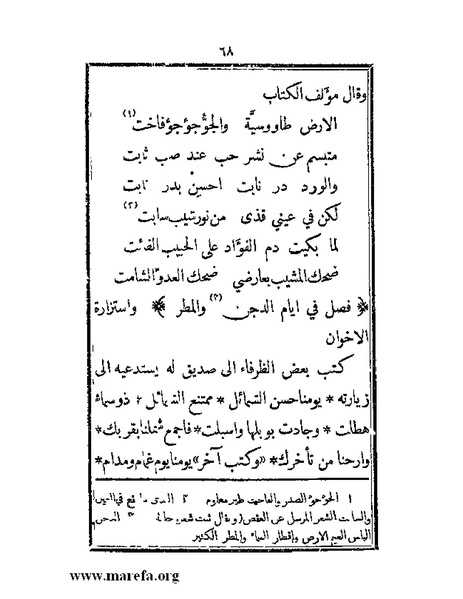 ٦٨
وقال مؤلف الكتاب
الارض طاووسيَّة والجوُّ جؤجؤ فاخت (١)
متبسم عن نشر حب عند صب ثابت
والورد در نابت احسِنْ بدر نابت
لكن في عيني قذى من نور شيب سابت (٢)
لما بكيت دم الفؤاد على الحبيب الفائت
ضحك المشيب بعارضي ضحك العدو الشامت
﴿ فصل في ايام الدجن (٣) والمطر ﴾ واستزارة
الاخوان
كتب بعض الظرفاء الى صديق له يستدعيه الى
زيارته * يومنا حسن الشمائل * ممتنع الشمائل * ذو سماء
هطلت * وجادت بوبلها واسبلت * فاجمع شملنا بقربك *
وارحنا من تأخرك * «وكتب آخر» يومنا يوم غمام ومدام *
١ الجؤجؤ الصدر والفاخت طير معلوم ٢ القذى ما يقع في العين
والسابت الشعر المرسل عن العقص ٣ الدجن
الباس الغيم الارض واقطار السماء والمطر الكثير
www.marefa.org